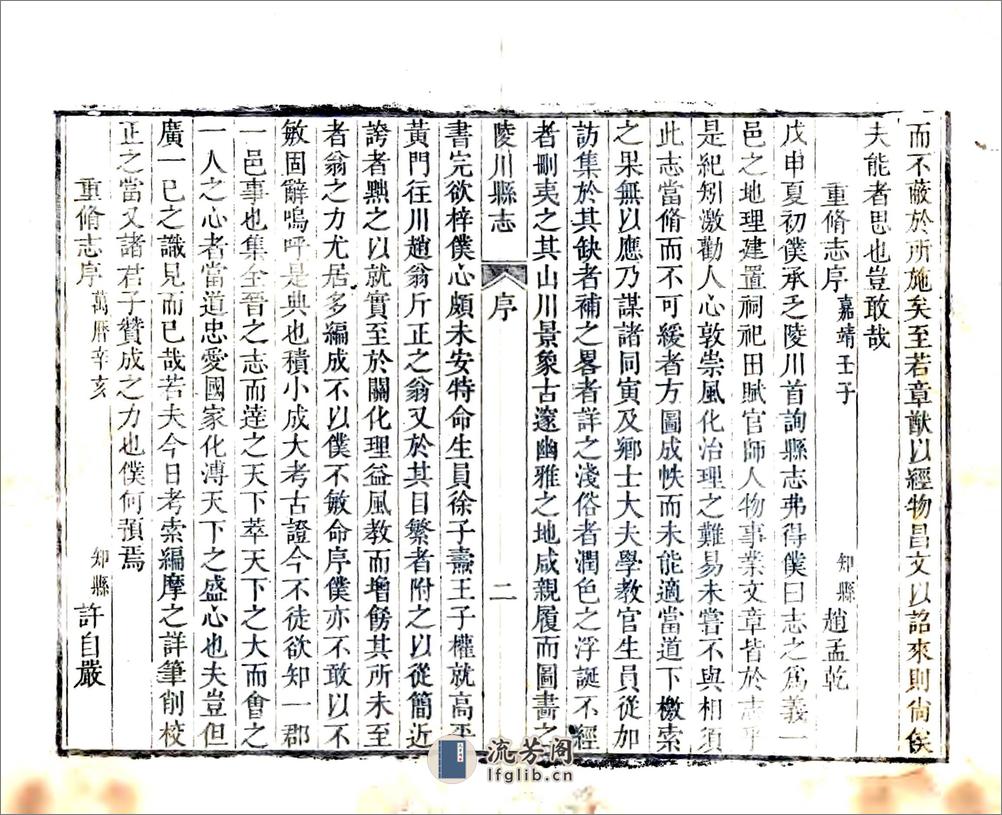 而不蔽於所施矣至若章猷以經物昌文以詔來則尙俟
夫能者思也豈敢哉
重脩志序 嘉靖壬子 知縣 趙孟乾
戊申夏初僕承乏陵川首詢縣志弗得僕曰志之爲義一
邑之地理建置祠祀田賦官師人物事業文章皆於志乎
是紀矧激勸人心敦崇風化治理之難易未嘗不與相須
此志當脩而不可緩者方圖成帙而未能適當道下檄索
之果無以應乃謀諸同寅及鄉士大夫學教官生員從加
訪集於其缺者補之畧者詳之淺俗者潤色之浮誕不經
者刪夷之其山川景象古邃幽雅之地咸親履而圖畫之
陵川縣志 序 二
書完欲梓僕心頗未安特命生員徐子燾王子權就高平
黃門往川趙翁斤正之翁又於其目繁者附之以從簡近
誇者黜之以就實至於關化理益風教而增餝其所未至
者翁之力尤居多編成不以僕不敏命序僕亦不敢以不
敏固辭嗚呼是典也積小成大考古證今不徒欲知一郡
一邑事也集全晉之志而達之天下萃天下之大而會之
一人之心者當道忠愛國家化溥天下之盛心也夫豈但
廣一已之識見而已哉若夫今日考索編摩之詳筆削校
正之當又諸君子贊成之力也僕何預焉
重脩志序 萬曆辛亥 知縣 許自嚴
流芳阁
lfglib.cn